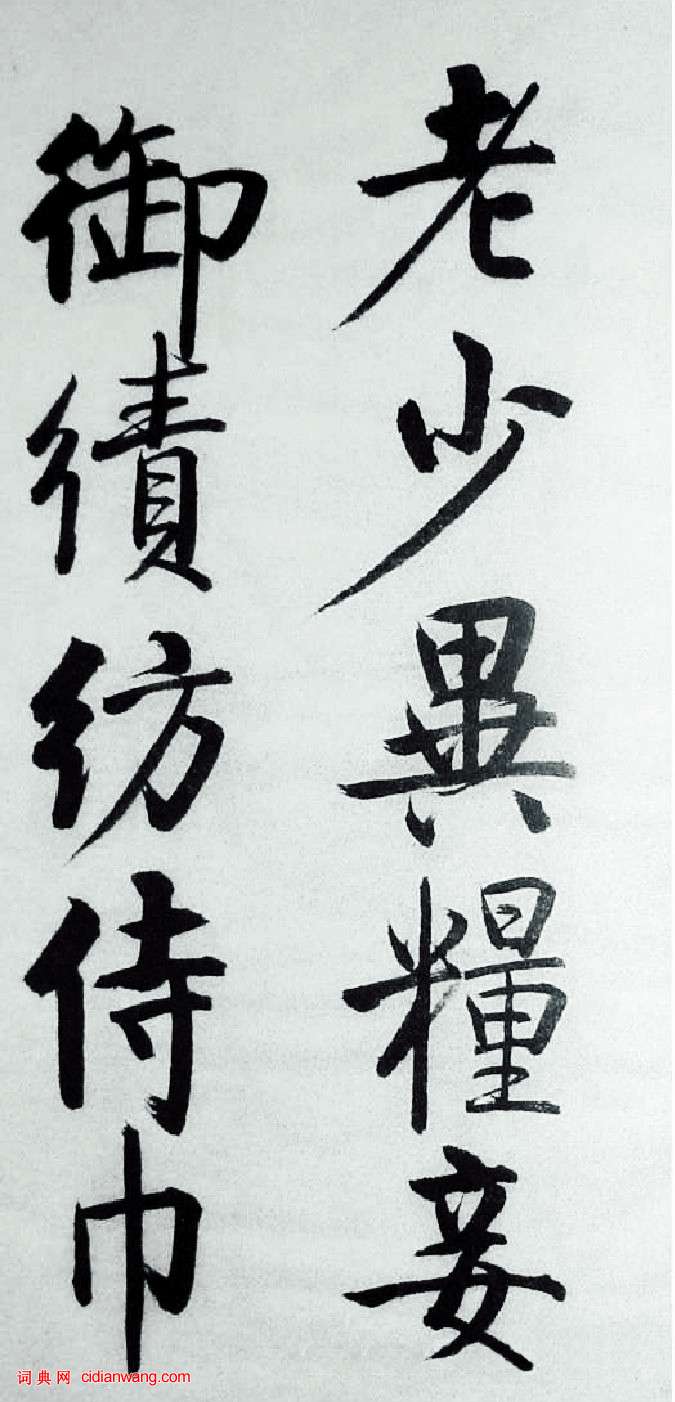 老少異糧妾
御績紡侍巾
词典网 cidianwang.com